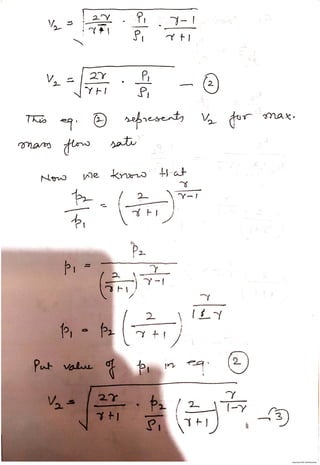 V₂ = √(2γ/(γ-1) · P₁/ρ₁ · (γ-1)/(γ+1))
V₂ = √(2γ/(γ+1) · P₁/ρ₁) — ②
This eq. ② represents V₂ for max.
mass flow rate
Now we know that
p₂/p₁ = (2/(γ+1))^(γ/(γ-1))
p₁ = p₂/(2/(γ+1))^(γ/(γ-1))
p₁ = p₂ (2/(γ+1))^(γ/(1-γ))
Put value of p₁ in eq. ②
V₂ = √(2γ/(γ+1) · p₂/ρ₁ (2/(γ+1))^(γ/(1-γ))) — ③